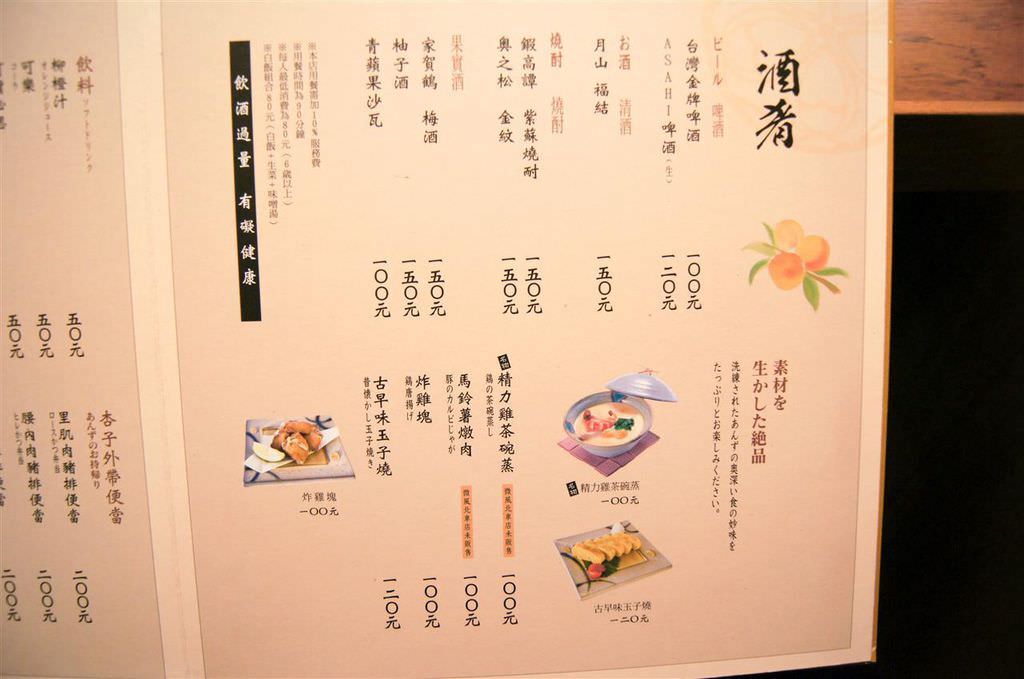 酒肴
ビール 啤酒
台灣金牌啤酒 一〇〇元
ASAHI啤酒(生) 一二〇元
お酒 清酒
月山 福結 一五〇元
焼酎 燒酎
鍛高譚 紫蘇燒酎 一五〇元
奥之松 金紋 一五〇元
果實酒
家賀鶴 梅酒 一五〇元
柚子酒 一五〇元
青蘋果沙瓦 一〇〇元
※本店用餐需加10%服務費
※用餐時間為90分鐘
※每人最低消費為80元(6歲以上)
※白飯組合80元(白飯+生菜+味噌湯)
飲酒過量 有礙健康
素材を
生かした絶品
洗練されたあんずの奥深い食の妙味を
たっぷりとお楽しみください。
精力雞茶碗蒸
一〇〇元
古早味玉子燒
一二〇元
精力雞茶碗蒸 微風北車店未販售 一〇〇元
鶏の茶碗蒸し
馬鈴薯燉肉 微風北車店未販售 一〇〇元
豚のカルビじゃが
炸雞塊 一〇〇元
鶏唐揚げ
古早味玉子燒 一二〇元
昔懐かし玉子焼き
炸雞塊
一〇〇元
飲料 ソフトドリンク
柳橙汁 五〇元
オレンジジュース
可樂 五〇元
コーラ
五〇元
杏子外帶便當
あんずのお持帰り
里肌肉豬排便當 二〇〇元
ロースかつ弁当
腰內肉豬排便當 二〇〇元
ヒレかつ弁当
二〇〇元